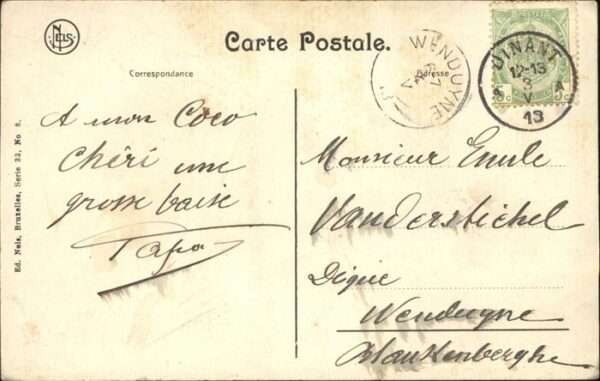 Carte Postale.
Correspondance
Adresse
WENDUYNE
DINANT
12-13
3
V
13
Ed. Nels, Bruxelles, Serie 32, No 8.
A mon Coco
chéri une
grosse baise
Papa
Monsieur Emile
Vanderstichel
Digue
Wenduyne
Blankenberghe